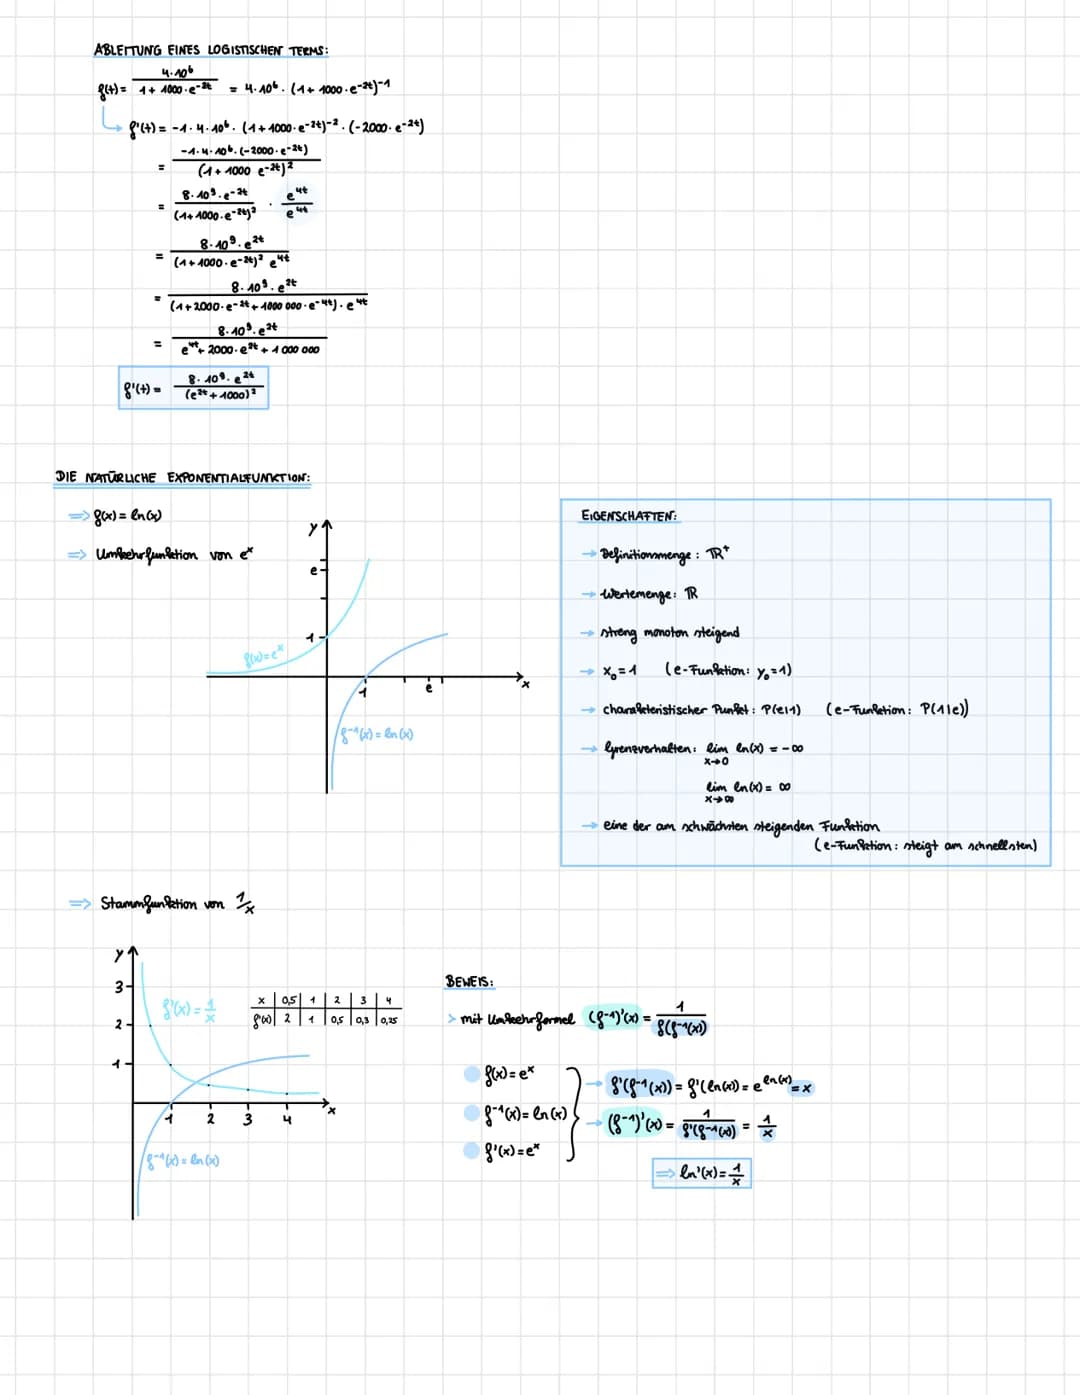 ABLEITUNG EINES LOGISTISCHEN TERMS:
f(t) = 4·10⁶ / (1 + 1000·e⁻²ᵗ) = 4·10⁶·(1 + 1000·e⁻²ᵗ)⁻¹
f'(t) = -1·4·10⁶·(1 + 1000·e⁻²ᵗ)⁻²·(-2000·e⁻²ᵗ)
= -1·4·10⁶·(-2000·e⁻²ᵗ) / (1 + 1000 e⁻²ᵗ)²
= 8·10⁹·e⁻²ᵗ / (1 + 1000·e⁻²ᵗ)² · e⁴ᵗ / e⁴ᵗ
= 8·10⁹·e²ᵗ / (1 + 1000·e⁻²ᵗ)² e⁴ᵗ
= 8·10⁹·e²ᵗ / (1 + 2000·e⁻²ᵗ + 1000 000·e⁻⁴ᵗ)·e⁴ᵗ
= 8·10⁹·e²ᵗ / e⁴ᵗ + 2000·e²ᵗ + 1 000 000
f'(t) = 8·10⁹·e²ᵗ / (e²ᵗ + 1000)²
DIE NATÜRLICHE EXPONENTIALFUNKTION:
⇒ f(x) = ln(x)
⇒ Umkehrfunktion von eˣ
y
e
1
f(x) = eˣ
1
e
x
f⁻¹(x) = ln(x)
EIGENSCHAFTEN:
→ Definitionsmenge: ℝ⁺
→ Wertemenge: ℝ
→ streng monoton steigend
→ x₀ = 1 (e-Funktion: y₀ = 1)
→ charakteristischer Punkt: P(e|1) (e-Funktion: P(1|e))
→ Grenzverhalten: lim ln(x) = -∞
x→0
lim ln(x) = ∞
x→∞
→ eine der am schwächsten steigenden Funktion
(e-Funktion: steigt am schnellsten)
⇒ Stammfunktion von 1/x
y
3
2
1
f'(x) = 1/x
x | 0,5 | 1 | 2 | 3 | 4
f'(x) | 2 | 1 | 0,5 | 0,3 | 0,25
1 2 3 4 x
f⁻¹(x) = ln(x)
BEWEIS:
> mit Umkehrformel (f⁻¹)'(x) = 1 / f(f⁻¹(x))
f(x) = eˣ
f⁻¹(x) = ln(x)
f'(x) = eˣ
→ f'(f⁻¹(x)) = f'(ln(x)) = e^ln(x) = x
→ (f⁻¹)'(x) = 1 / f'(f⁻¹(x)) = 1/x
⇒ ln'(x) = 1/x